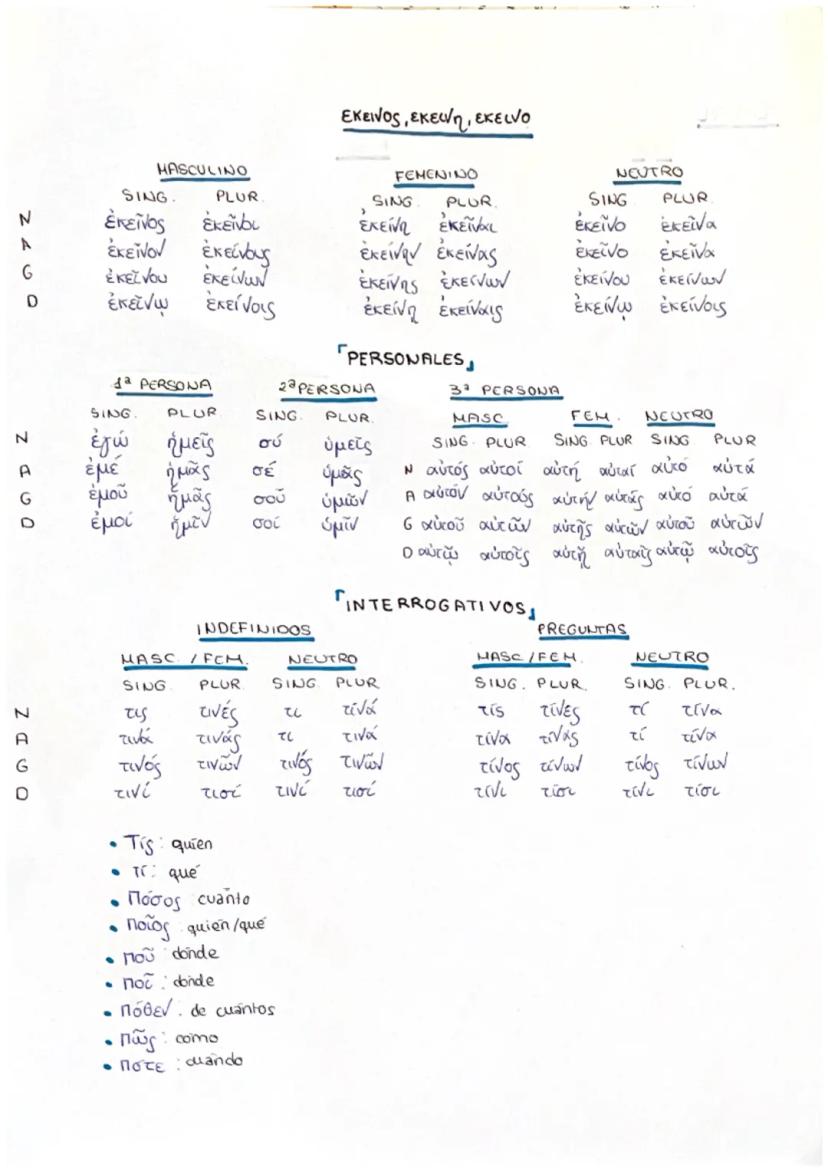 εκεινος, εκεινη, εκεινο
MASCULINO FEMENINO NEUTRO
SING. PLUR. SING. PLUR. SING. PLUR.
N ἐκεῖνος ἐκεῖνοι ἐκείνη ἐκεῖναι ἐκεῖνο ἐκεῖνα
A ἐκεῖνον ἐκείνους ἐκείνην ἐκείνας ἐκεῖνο ἐκεῖνα
G ἐκεῖνου ἐκείνων ἐκείνης ἐκείνων ἐκείνου ἐκείνων
D ἐκεῖνῳ ἐκείνοις ἐκείνῃ ἐκείναις ἐκείνῳ ἐκείνοις
「PERSONALES」
1ª PERSONA 2ª PERSONA 3ª PERSONA
SING. PLUR. SING. PLUR. MASC FEM. NEUTRO
SING. PLUR SING. PLUR SING PLUR
N ἐγώ ἡμεῖς σύ ὑμεῖς N αὐτός αὐτοί αὐτή αὐταί αὐτό αὐτά
A ἐμέ ἡμᾶς σέ ὑμᾶς A αὐτόν αὐτούς αὐτήν αὐτάς αὐτό αὐτά
G ἐμοῦ ἡμᾶς σοῦ ὑμῶν G αὐτοῦ αὐτῶν αὐτῆς αὐτῶν αὐτοῦ αὐτῶν
D ἐμοί ἡμῖν σοί ὑμῖν D αὐτῷ αὐτοῖς αὐτῇ αὐταῖς αὐτῷ αὐτοῖς
「INTERROGATIVOS」
INDEFINIDOS PREGUNTAS
MASC. / FEM. NEUTRO MASC / FEM. NEUTRO
SING. PLUR. SING. PLUR. SING. PLUR. SING. PLUR.
N τις τινές τι τίνά τίς τίνες τί τίνα
A τινά τινάς τι τινά τίνα τίνας τί τίνα
G τινός τινῶν τινός τινῶν τίνος τίνων τίνος τίνων
D τινί τισί τινί τισί τίνι τίσι τίνι τίσι
• Τίς: quien
• τί: qué
• Πόσος: cuánto
• Ποῖος: quién/qué
• ποῦ: dónde
• ποῖ: dónde
• πόθεν: de cuántos
• πῶς: cómo
• ποτε: cuándo